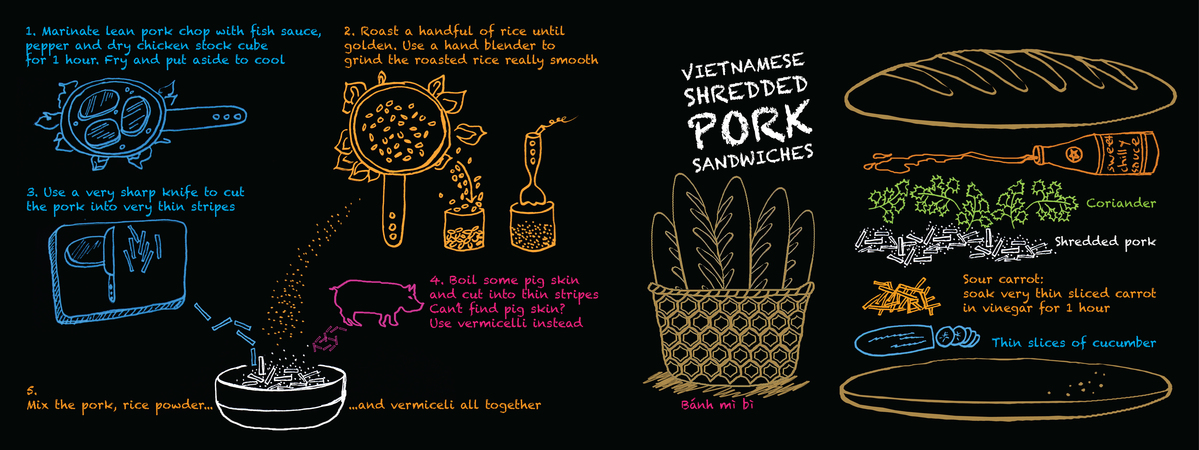 1. Marinate lean pork chop with fish sauce,
pepper and dry chicken stock cube
for 1 hour. Fry and put aside to cool
2. Roast a handful of rice until
golden. Use a hand blender to
grind the roasted rice really smooth
3. Use a very sharp knife to cut
the pork into very thin stripes
4. Boil some pig skin
and cut into thin stripes
Can't find pig skin?
Use vermicelli instead
5.
Mix the pork, rice powder...
...and vermiceli all together
VIETNAMESE
SHREDDED
PORK
SANDWICHES
Bánh mì bì
sweet
chilly
sauce
Coriander
Shredded pork
Sour carrot:
soak very thin sliced carrot
in vinegar for 1 hour
Thin slices of cucumber